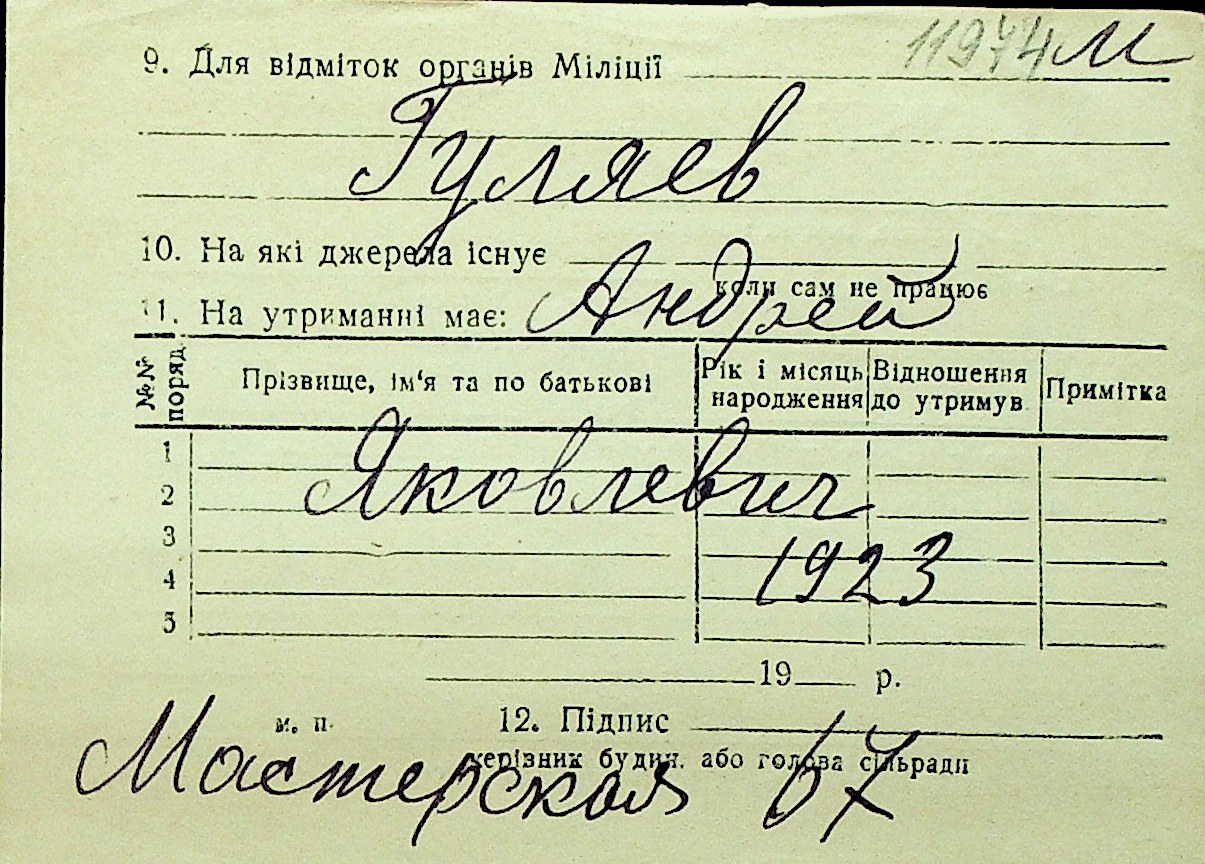 11974 М
9. Для відміток органів Міліції
Гуляев
10. На які джерела існує
коли сам не працює
Андрей
11. На утриманні має:
№№ поряд. Прізвище, ім‘я та по батькові Рік і місяць народження Відношення до утримув. Примітка
1
Яковлевич
2
3
1923
4
5
19 р.
м. п. 12. Підпис
керівник будин. або голова сільради
Мастерская 67